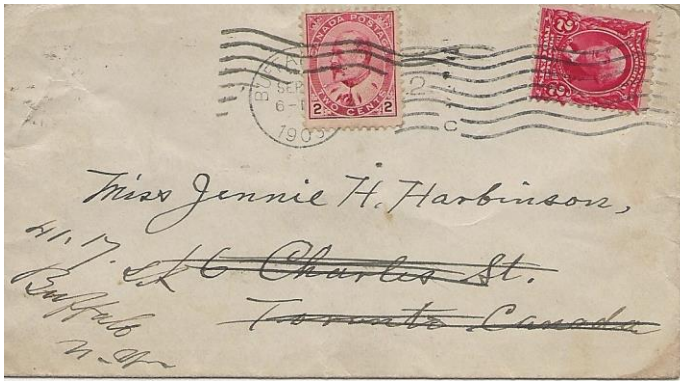 CANADA POSTAGE
2 TWO CENTS 2
BUFFALO
SEP
6-
1903
2
C
2 2
Miss Jennie H. Harbinson,
6 Charles St.
Toronto Canada
Buffalo
N-Y-